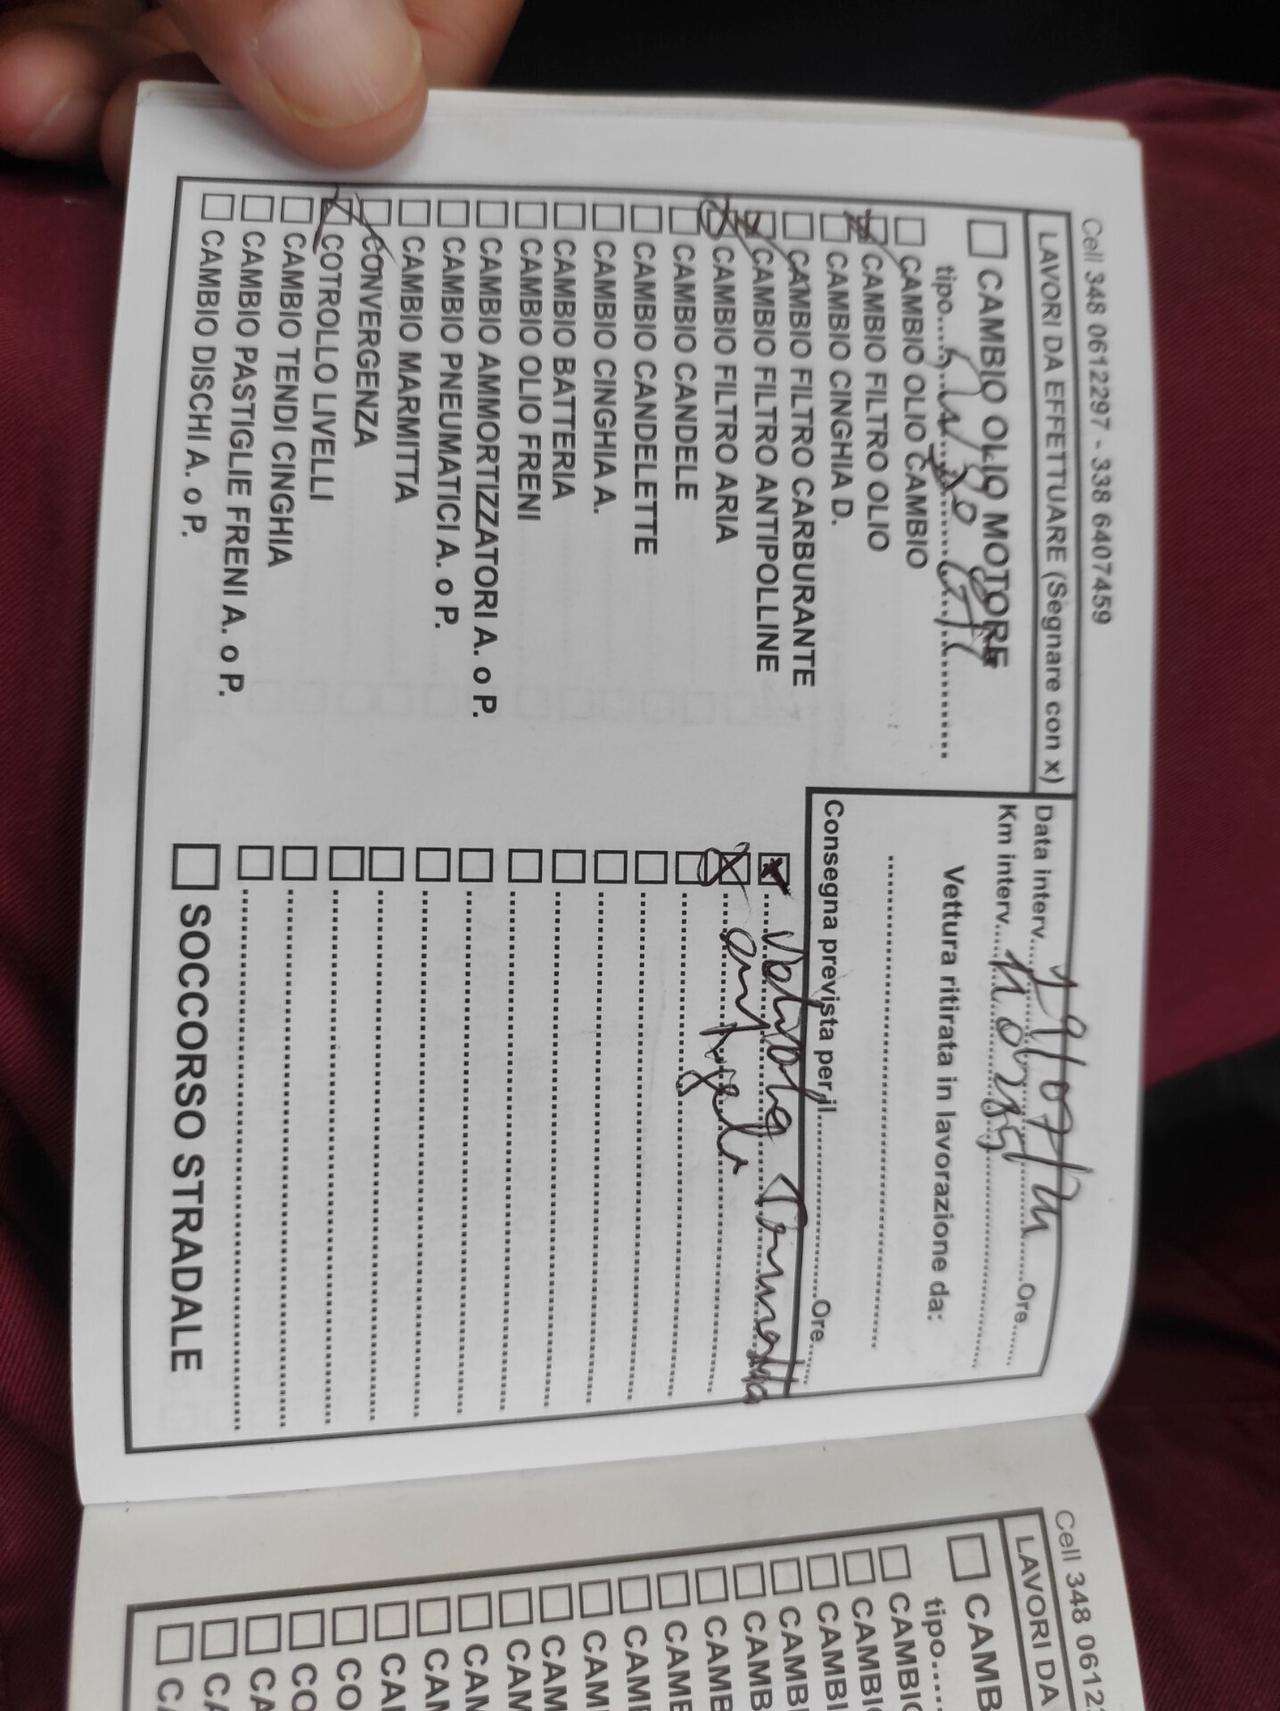 Cell 348 0612297 - 338 6407459
LAVORI DA EFFETTUARE (Segnare con x)
Data interv. 19/07/21 Ore
Km interv.
CAMBIO OLIO MOTORE
tipo
Vettura ritirata in lavorazione da:
CAMBIO OLIO CAMBIO
CAMBIO FILTRO OLIO
CAMBIO CINGHIA D.
Consegna prevista per il Ore
CAMBIO FILTRO CARBURANTE
CAMBIO FILTRO ANTIPOLLINE
CAMBIO FILTRO ARIA
valvola termostatica
antigelo
CAMBIO CANDELE
CAMBIO CANDELETTE
CAMBIO CINGHIA A.
CAMBIO BATTERIA
CAMBIO OLIO FRENI
CAMBIO AMMORTIZZATORI A. o P.
CAMBIO PNEUMATICI A. o P.
CAMBIO MARMITTA
CONVERGENZA
COTROLLO LIVELLI
CAMBIO TENDI CINGHIA
CAMBIO PASTIGLIE FRENI A. o P.
CAMBIO DISCHI A. o P.
SOCCORSO STRADALE
Cell 348 0612
LAVORI DA
CAMB
tipo
CAMBIO
CAMBI
CAMBI
CAMBI
CAMB
CAMB
CAMB
CAMB
CAM
CAM
CAM
CAM
CAM
CO
CO
CA
CA
CA